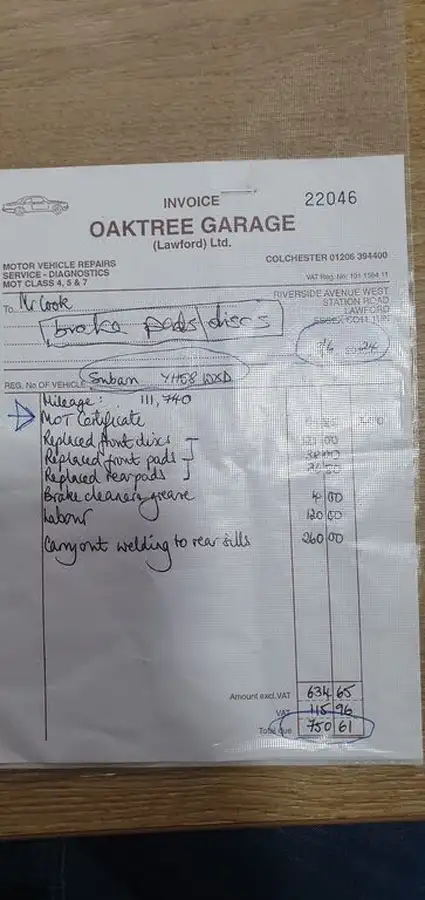 INVOICE 22046
OAKTREE GARAGE
(Lawford) Ltd.
COLCHESTER 01206 394400
MOTOR VEHICLE REPAIRS
SERVICE - DIAGNOSTICS
MOT CLASS 4, 5 & 7
VAT Reg. No:
To Mr Cook
RIVERSIDE AVENUE WEST
STATION ROAD
LAWFORD
brake pads/discs
REG. No OF VEHICLE Subaru YH58
Mileage: 111,740
MOT Certificate
Replaced front discs
Replaced front pads
Replaced rear pads
Brake cleaner, grease 4 00
Labour 120 00
Carry out welding to rear sills 260 00
Amount excl.VAT 634 65
VAT 115 96
Total due 750 61